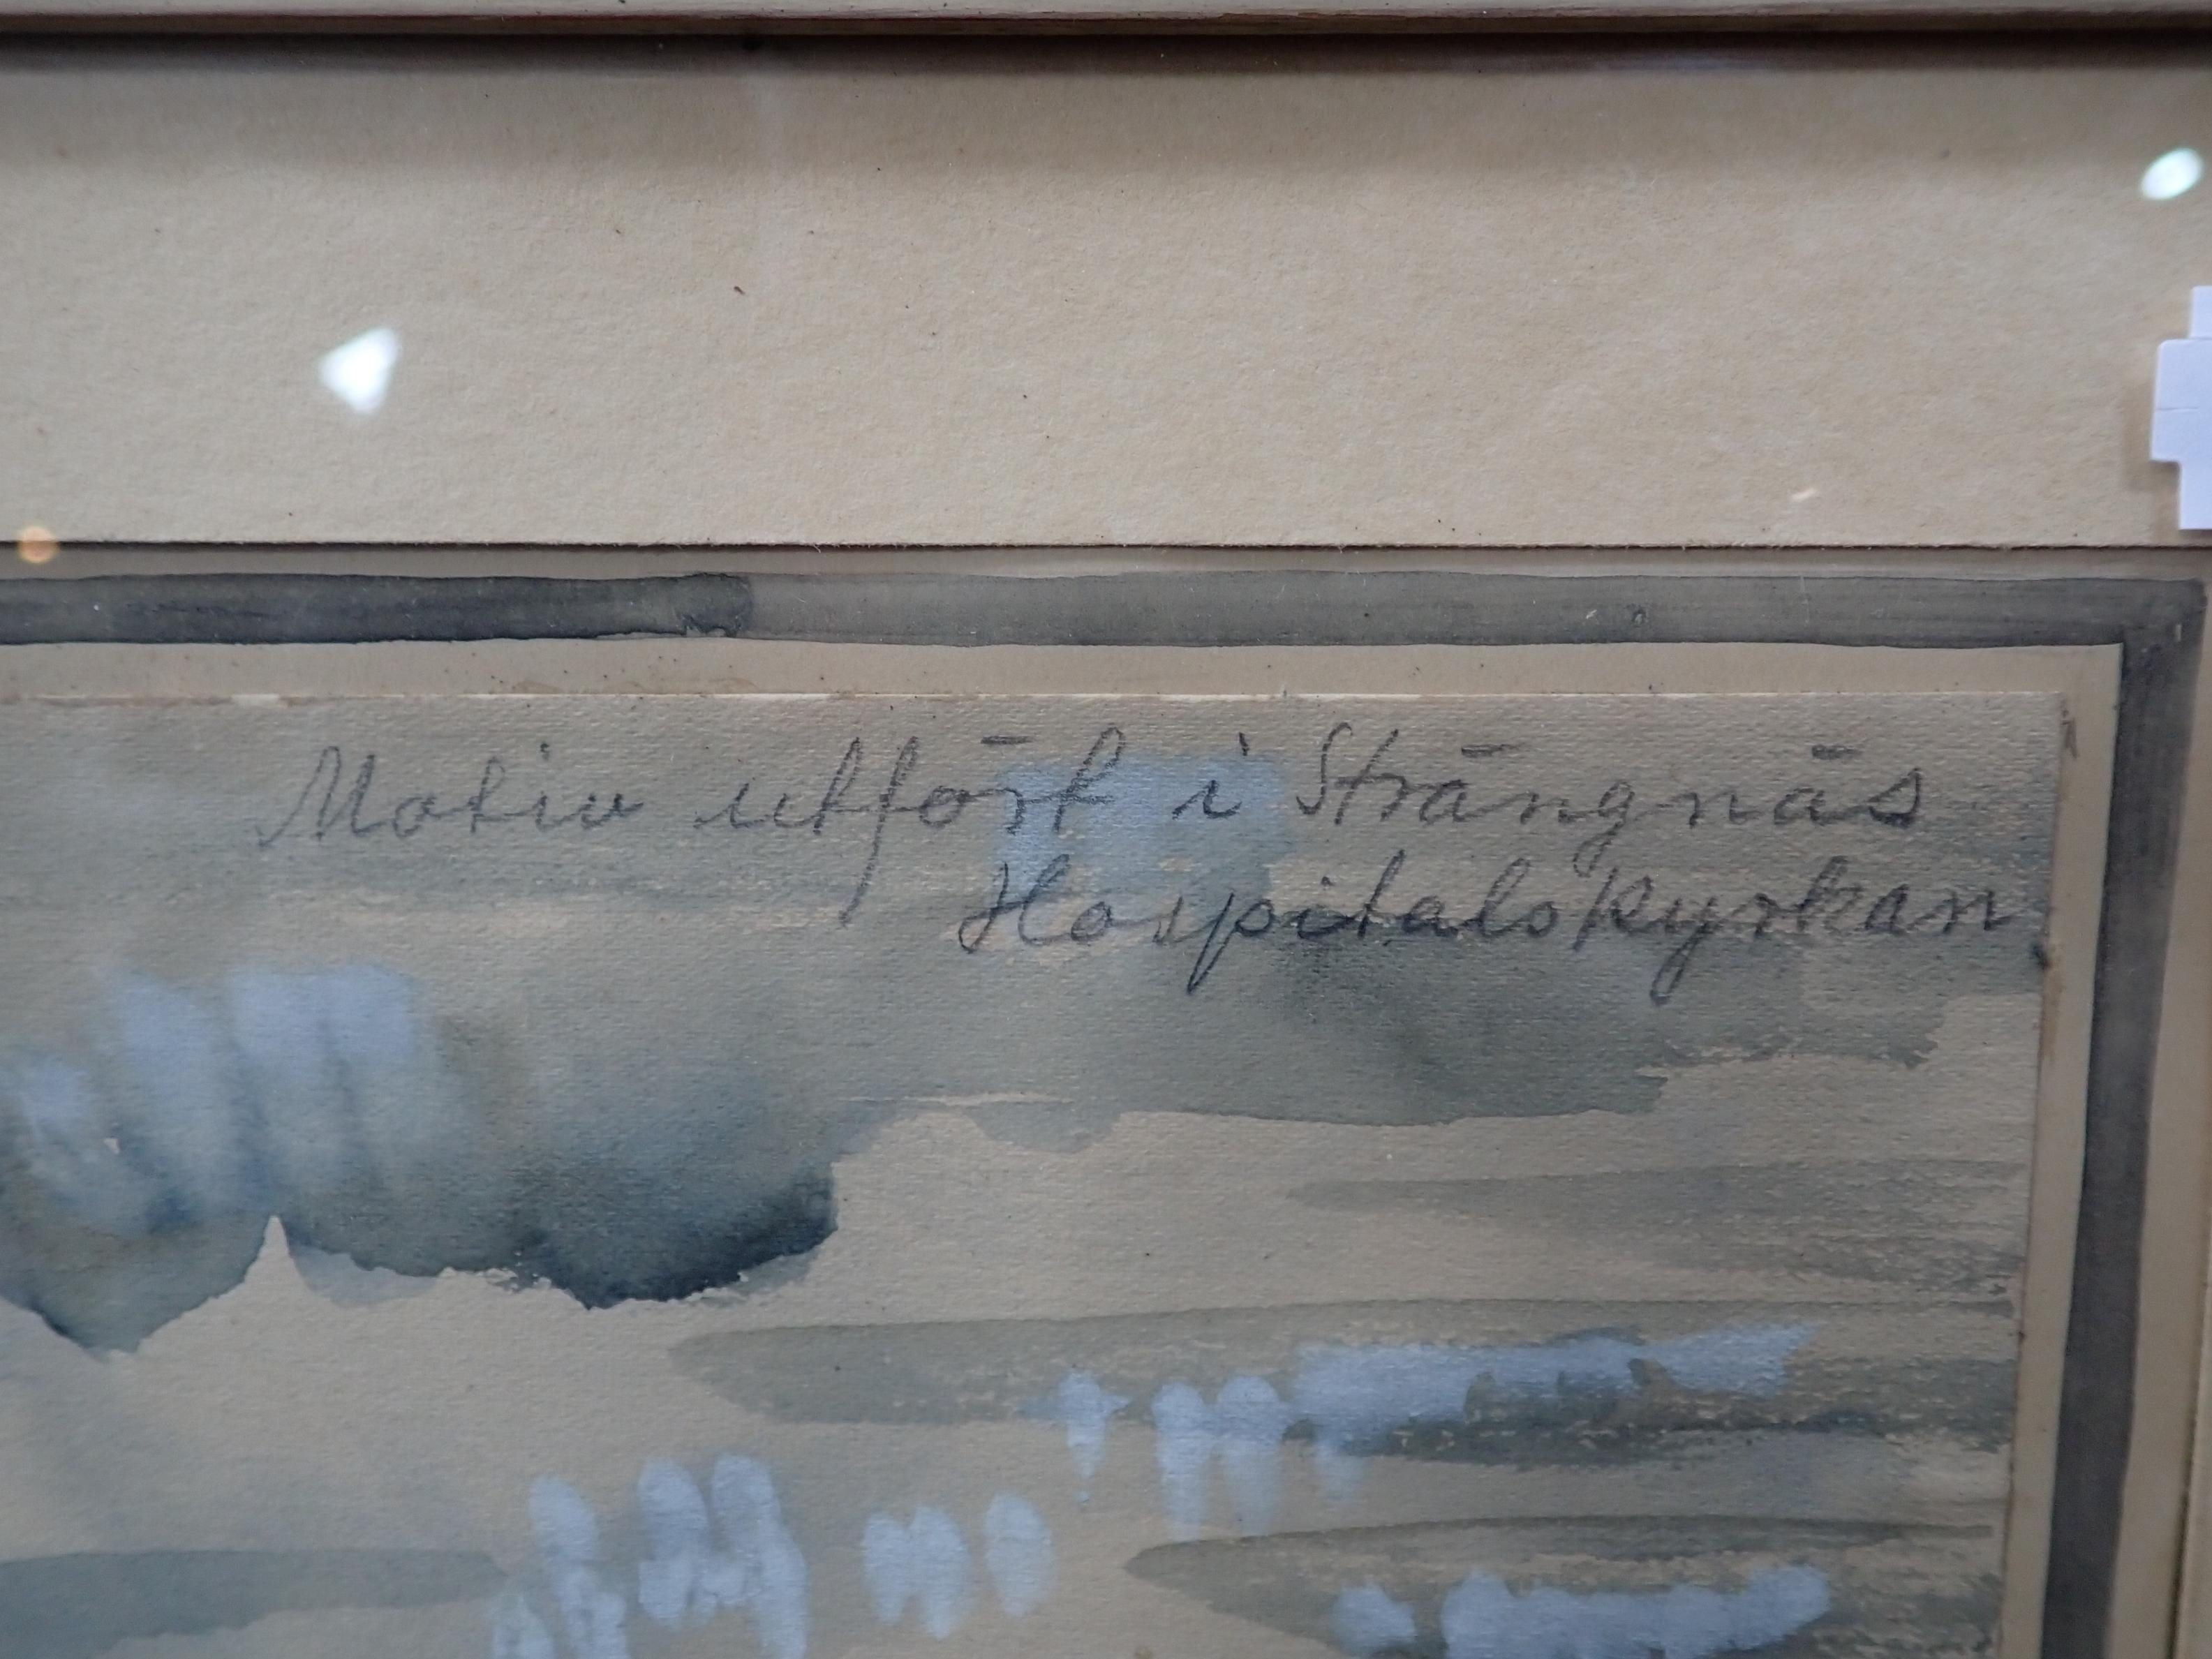 Motiv utfört i Strängnäs
Hospitalskyrkan